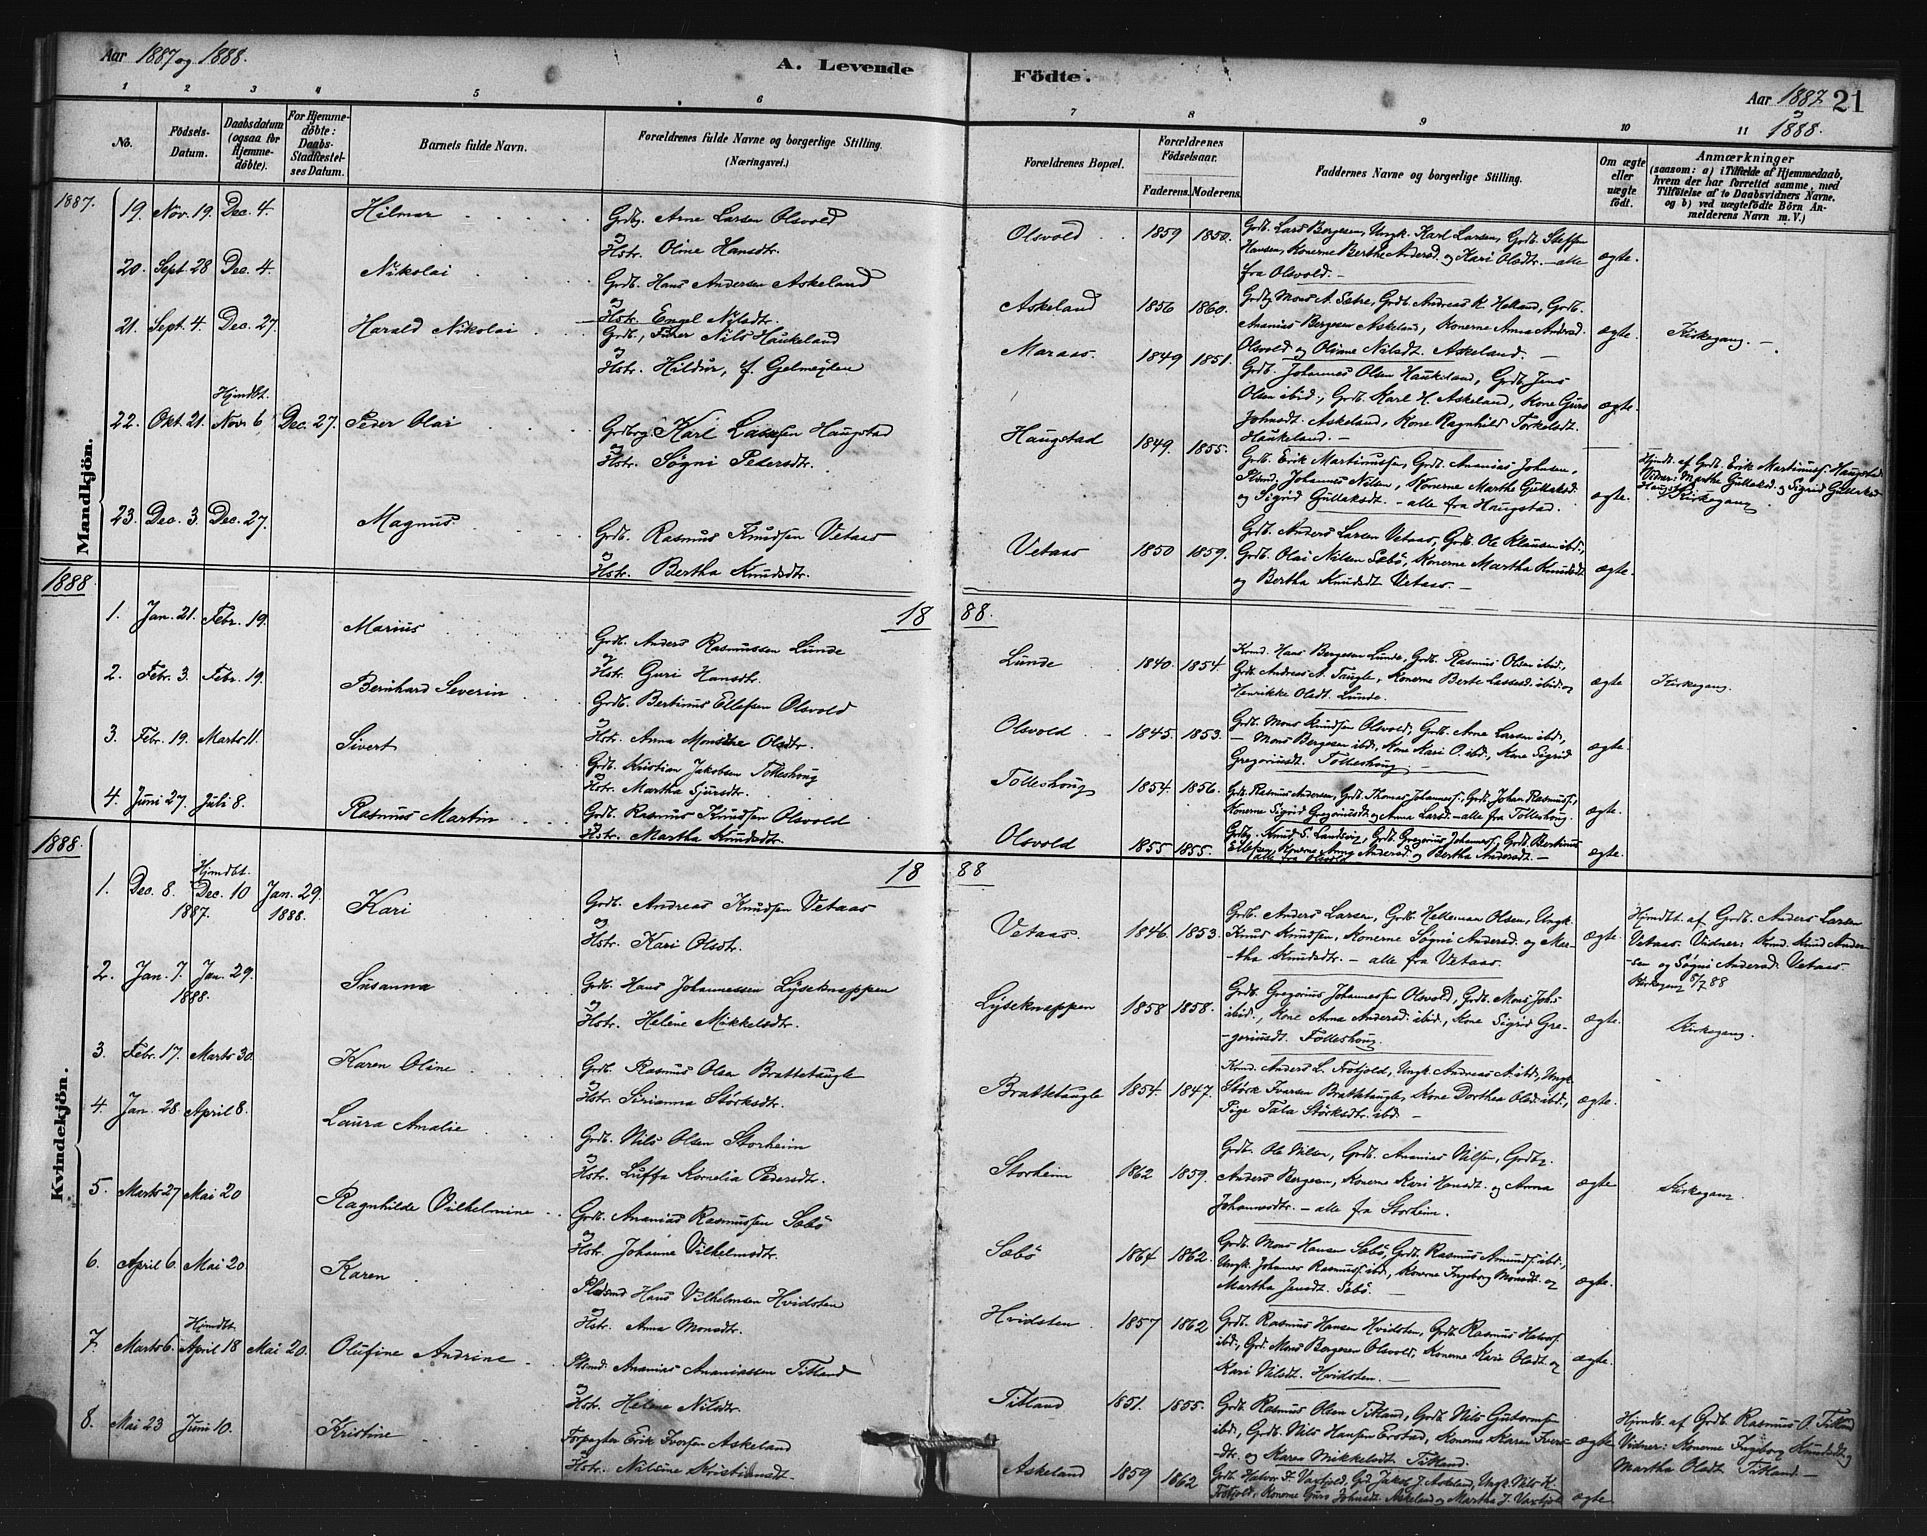 Aar 1887 og 1888.
A. Levende
Födte.
Aar 1887 21
1888.
1 2 3 4 5 6 7 8 9 10 11
No.
Födsels-
Datum.
Daabsdatum
(ogsaa for
Hjemme-
döbte).
For Hjemme-
döbte:
Daabs-
Stadfæstel-
ses Datum.
Barnets fulde Navn.
Forældrenes fulde Navne og borgerlige Stilling.
(Næringsvei.)
Forældrenes Bopæl.
Forældrenes
Födselsaar.
Faderens. Moderens.
Faddernes Navne og borgerlige Stilling.
Om ægte
eller
uægte
födt.
Anmærkninger
(saasom: a) i Tilfælde af Hjemmedaab,
hvem der har forrettet samme, med
Tilföielse af to Daabsvidners Navne,
og b) ved uægtefödte Börn An-
melderens Navn m. V.)
Mandkjön.
1887.
19. Nov. 19. Dec. 4. Hilmar
Grdbg. Arne Larsen Olsvold
og
Hstr. Oline Hansdtr.
Olsvold 1859 1850.
Grdb. Lars Bergesen, Ungk. Karl Larsen, Grdb. Steffen
Hansen, Konerne Berthe Andersd. og Kari Olsdtr. - alle
fra Olsvold. -
ægte.
20. Sept. 28 Dec. 4. Nikolai
Grdb. Hans Andersen Askeland
og
Hstr. Engel Nilsdtr.
Askeland 1856 1860.
Grdbg Mons A. Sætre, Grdb. Andreas K. Helland, Grdb.
Ananias Bergesen Askeland, Konerne Anna Andersd.
Olsvold og Oline Nilsdt. Askeland. -
ægte. Kirkegang. -
21. Sept. 4. Dec. 27. Harald Nikolai
Grdb., Fisker Nils Haukeland
og
Hstr. Hildur, f. Gelmeyden
Maraas. 1849 1851.
Grdb. Johannes Olsen Haukeland, Grdb. Jens
Olsen ibid., Grdb. Karl H. Askeland, Kone Guro
Johnsdt. Askeland, Kone Ragnhild Torkelsdt.
Haukeland. -
ægte.
22. Okt. 21. Hjmdbt. Nov. 6, Dec. 27. Peder Olai
Grdbrg. Karl Lassesen Haugstad
og
Hstr. Søgni Pedersdtr.
Haugstad 1849. 1855.
Grdb. Erik Martinussen, Grdb. Ananias Johnsen,
Plsmd. Johannes Nilsen, Konerne Marthe Gullaksd.
og Sigrid Gullaksdt. - alle fra Haugstad.
ægte.
Hjmdb. af Grdb. Erik Martinuss. Haugstad.
Vidner: Marthe Gullaksd. og Sigrid Gullaksd.
Haugstad. Kirkegang.
23. Dec. 3. Dec. 27. Magnus
Grdb. Rasmus Knudsen Vetaas
og
Hstr. Bertha Knudsdtr.
Vetaas 1850 1859.
Grdb. Anders Larsen Vetaas, Grdb. Ole Klausen ibd.,
Grdb. Olai Nilsen Sæbö, Konerne Martha Knudsdt.
og Bertha Knudsdt. Vetaas. -
ægte.
1888 1888.
1. Jan. 21. Febr. 19. Marius
Grdb. Anders Rasmussen Lunde
og
Hstr. Guri Hansdtr.
Lunde 1840. 1854.
Kmd. Hans Bergesen Lunde, Grdb. Rasmus Olsen ibid.,
Grdb. Andreas A. Taugle, Konerne Berte Lassesd. ibid. og
Henrikke Olsdt. Lunde.
ægte Kirkegang.
2. Febr. 3. Febr. 19. Bernhard Severin
Grdb. Bertinus Ellefsen Olsvold
og
Hstr. Anna Monsine Olsdtr.
Olsvold 1845. 1853.
Grdb. Mons Knudsen Olsvold, Grdb. Arne Larsen ibid.,
- Mons Bergesen ibd., Kone Kari O. ibd., Kone Sigrid
Gregoriusdt. Tolleshoug
ægte.
3. Febr. 19. Marts 11. Sivert
Grdb. Kristian Jakobsen Tolleshoug
og
Hstr. Martha Sjursdtr.
Tolleshoug 1854. 1856.
Grdb. Rasmus Andersen, Grdb. Thomas Johanness., Grdb. Johan Rasmuss.,
Konerne Sigrid Gregoriusdt. og Anna Larsd. - alle fra Tolleshoug.
ægte.
4. Juni 27. Juli 8. Rasmus Martin
Grdb. Rasmus Knudsen Olsvold
og
Hstr. Martha Knudsdtr.
Olsvold 1855 1855.
Grdbg. Knud S. Landsvig, Grdb. Gregorius Johanness., Grdb. Bertinus
Ellefsen, Konerne Anna Andersd. og Bertha Andersdt. -
alle fra Olsvold
ægte.
Kvindekjön.
1888. 1888
1. Dec. 8. Hjmdbt. Dec. 10 1887. Jan. 29. 1888. Kari
Grdb. Andreas Knudsen Vetaas
og
Hstr. Kari Olsdtr.
Vetaas. 1846. 1853.
Grdb. Anders Larsen, Grdb. Helleman Olsen, Ungk.
Knud Knudsen, Konerne Søgni Andersd. og Mar-
-tha Knudsdtr. - alle fra Vetaas.
ægte.
Hjmdbt. af Grdb. Anders Larsen
Vetaas. Vidner: Kmd. Knud Ander-
sen og Søgni Andersd. Vetaas.
Kirkegang 8/7 88
2. Jan. 7. Jan. 29. 1888. Susanna
Grdb. Hans Johannessen Lyseknappen
og
Hstr. Helene Mikkelsdtr.
Lyseknappen 1858 1858.
Grdb. Gregorius Johannessen Olsvold, Grdb. Mons Johs.
ibid., Kone Anna Andersd. ibid., Kone Sigrid Gre-
-goriusdt. Tolleshoug.
ægte. Kirkegang.
3. Febr. 17. Marts 30. Karen Oline
Grdb. Rasmus Olsen Brattetaugle
og
Hstr. Sirianna Störksdtr.
Brattetaugle 1854. 1847.
Kmd. Anders L. Fotjold, Ungk. Andreas A. ibd., Ungk.
Störk Ivarsen Brattetaugle, Kone Dorthea Olsd. ibd.,
Pige Tala Störksdtr. ibd. -
ægte.
4. Jan. 28. April 8. Laura Amalie
Grdb. Nils Olsen Storheim
og
Hstr. Luffa Kornelia Pedersdt.
Storheim 1862 1859.
Grdb. Ole Nilsen, Grdb. Ananias Nilsen, Grdbg.
Anders Bergesen, Konerne Kari Hansdt. og Anna
Johannesdtr. - alle fra Storheim.
ægte Kirkegang.
5. Marts 27 Mai 20 Ragnhilde Vilhelmine
Grdb. Ananias Rasmussen Sæbö
og
Hstr. Johanne Vilhelmsdtr.
Sæbö 1864 1862.
Grdb. Mons Hansen Sæbö, Grdb. Rasmus Amunds. ibd.,
Ungk. Johannes Rasmuss. ibd., Konerne Ingeborg Monsdt. og
Martha Jensdt. Sæbö. -
ægte.
6. April 6. Mai 20 Karen
Pladsmd Hans Vilhelmsen Hvidsten
og
Hstr. Anna Monsdtr.
Hvidsten. 1857 1862
Grdb. Rasmus Hansen Hvidsten, Grdb. Rasmus Halvors.
ibd., Grd. Mons Bergesen Olsvold, Konerne Kari Olsdt. og
Kari Nilsdt. Hvidsten. -
ægte.
7. Marts 6. Hjmdbt. April 18 Mai 20. Olufine Andrine
Plsmd. Ananias Ananiassen Titland
og
Hstr. Helene Nilsdtr.
Titland 1851. 1855.
Grdb. Rasmus Olsen Titland, Grdb. Nils Guttormsen
ibd., Grdb. Nils Hansen Erstad, Konerne Karen Ivers-
-dtr. og Karen Mikkelsdt. Titland.
ægte
Hjmdb. af Grdb. Rasmus O. Titland
Vidner: Konerne Ingeborg Knudsdt. og
Martha Olsdt. Titland. -
8. Mai 23 Juni 10. Kristine
Forpagter Erik Iversen Askeland
Hstr. Nilsine Kristiansdt.
Askeland 1859 1862
Grdb. Halvor T. Vaxfjold, Grd. Jakob J. Askeland, Ungk. Nils K.
Fotjold, Konerne Guro Johnsdt. Askeland og Martha J. Vaxfjol
ægte